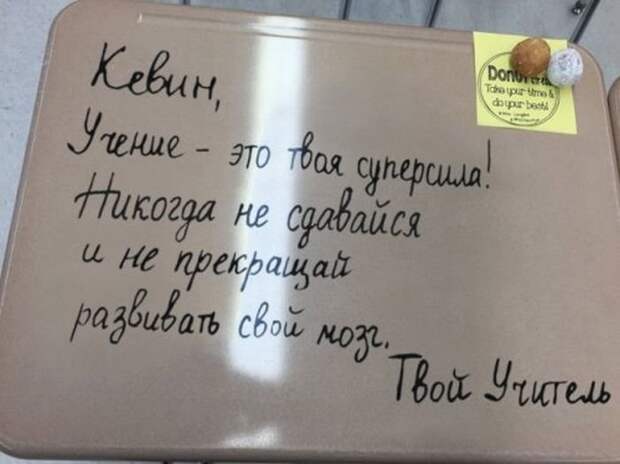 Кевин,
Учение - это твоя суперсила!
Никогда не сдавайся
и не прекращай
развивать свой мозг.
Твой Учитель
Take your time &
do your best!